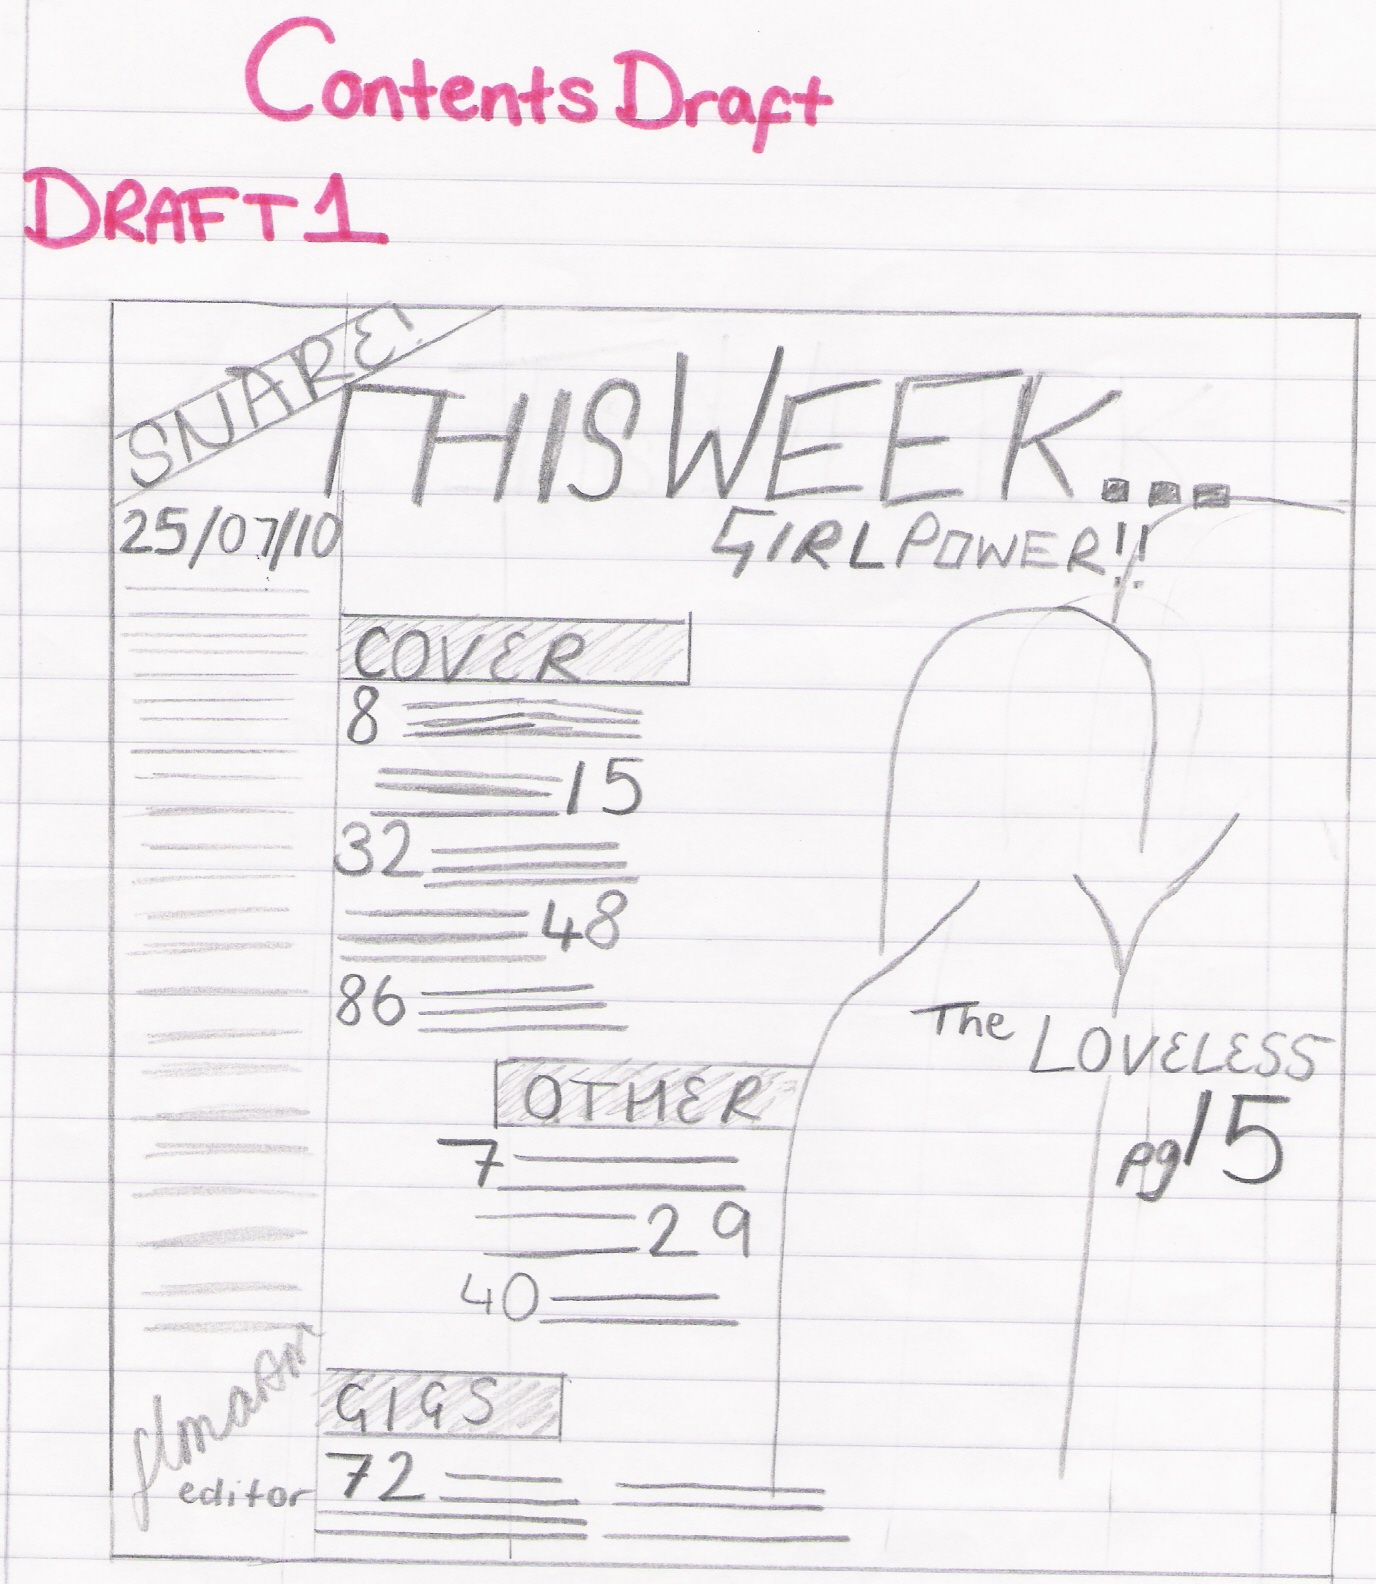 Contents Draft
DRAFT 1
SNARE!
THIS WEEK...
25/07/10
GIRL POWER!!
COVER
8
15
32
48
86
The LOVELESS
pg 15
OTHER
7
29
40
GIGS
72
editor